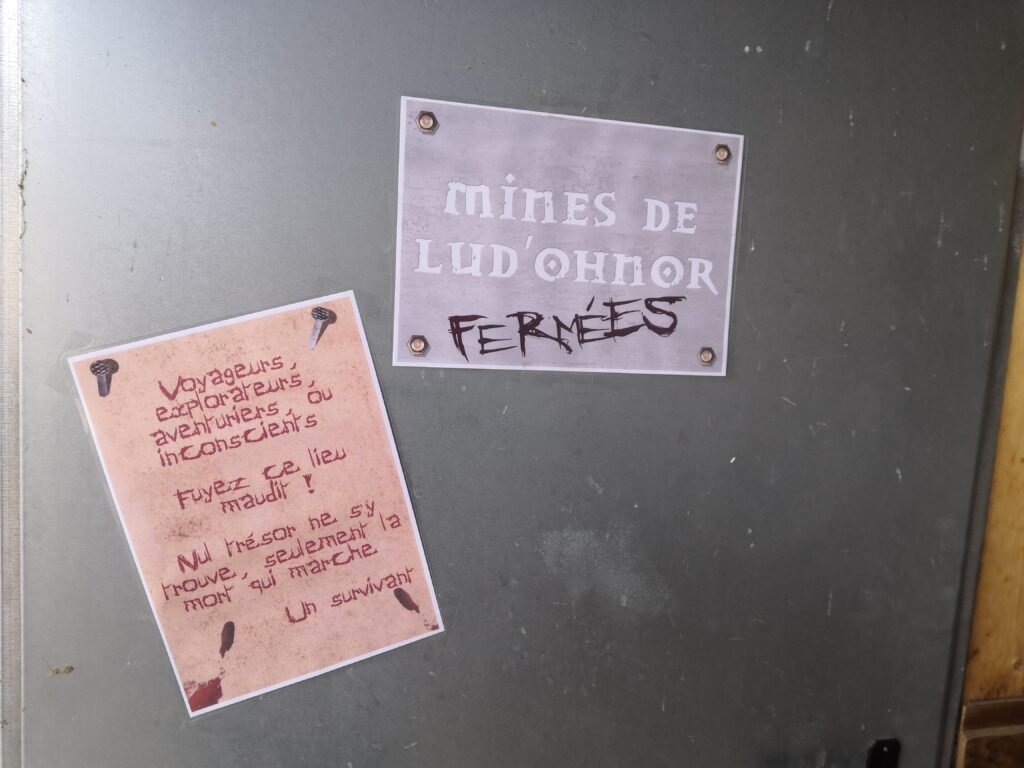 MINES DE
LUD'OHNOR
FERMÉES
Voyageurs,
explorateurs,
aventuriers, ou
inconscients
Fuyez ce lieu
maudit !
Nul trésor ne s'y
trouve, seulement la
mort qui marche.
Un survivant